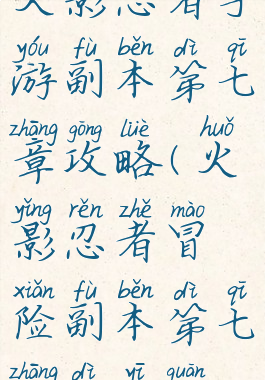 火影忍者手
yóu fù běn dì qī
游副本第七
zhāng gōng lüè huǒ
章攻略(火
yǐng rěn zhě mào
影忍者冒
xiǎn fù běn dì qī
险副本第七
zhāng dì yī guān